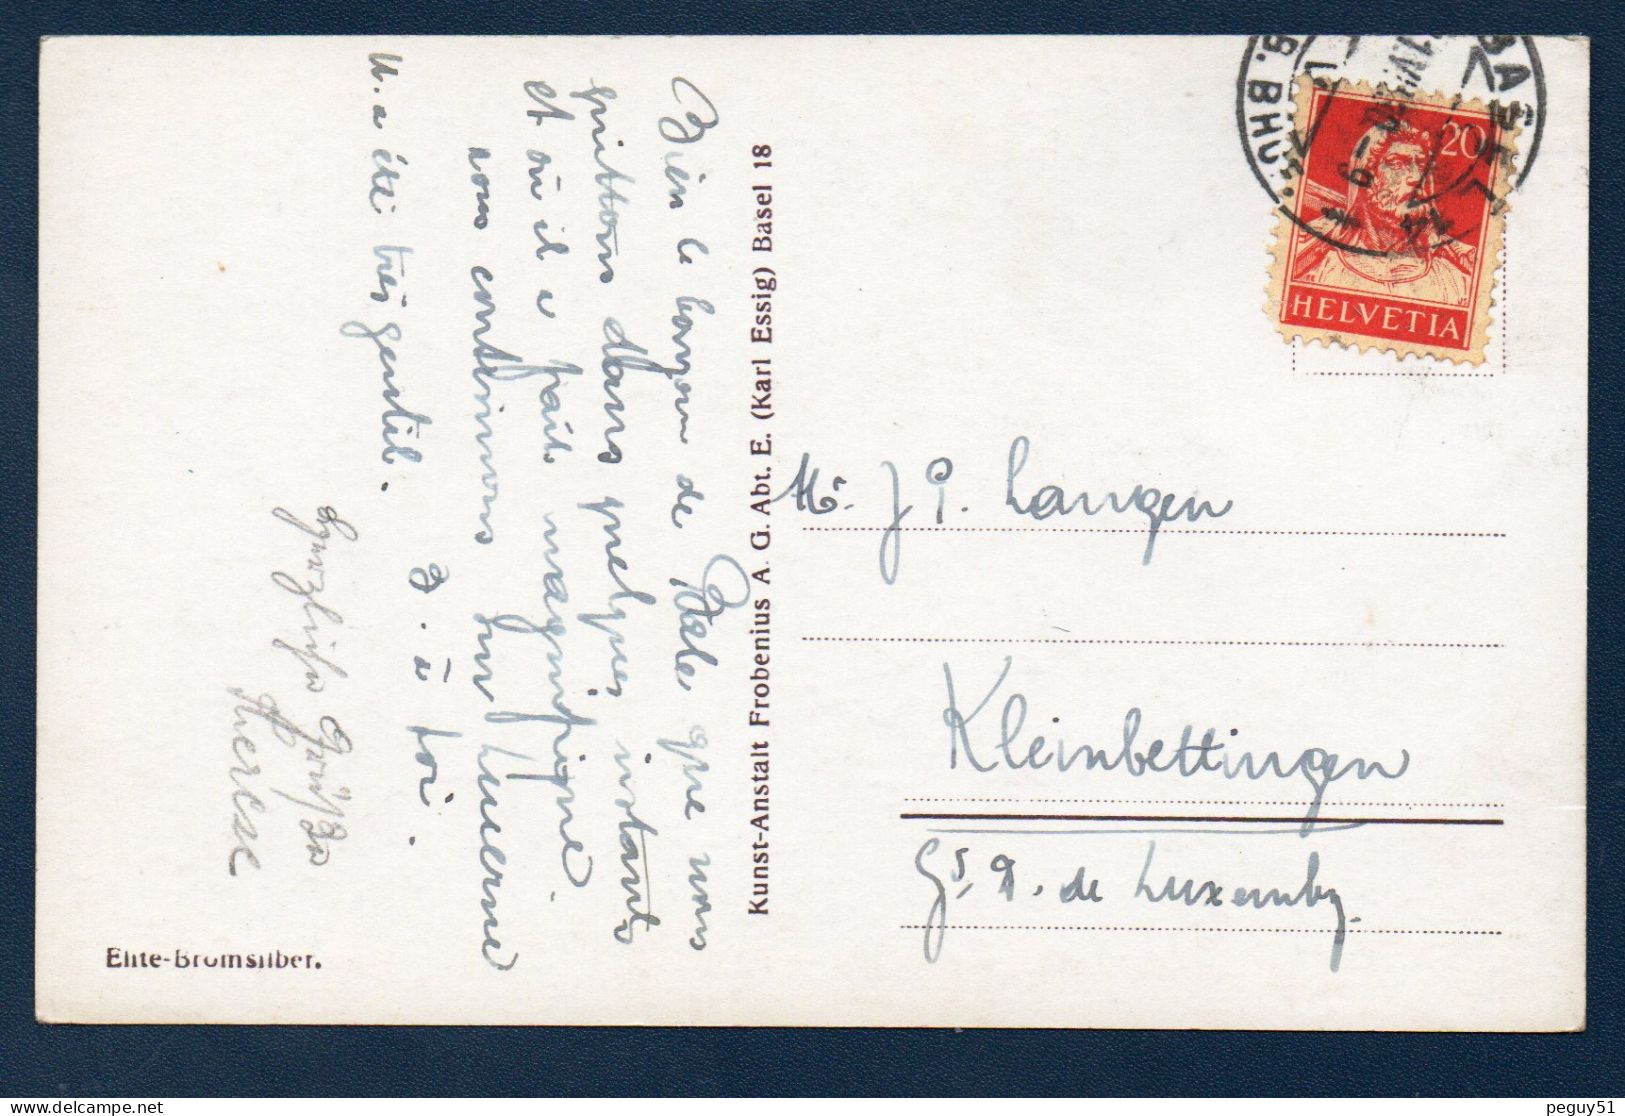 Bien le bonjour de Bâle que nous
quittons dans quelques instants
et où il a fait magnifique
nous continuons sur Lucerne
U. a été très gentil.
B. à toi.
Herzliche Grüße
Therese
Kunst-Anstalt Frobenius A. G. Abt. E. (Karl Essig) Basel 18
Elite-Bromsilber.
BASEL
S. BHF.
20
HELVETIA
Mr. J P. Langen
Kleinbettingen
Gd. D. de Luxembg.
delcampe.net
peguy51